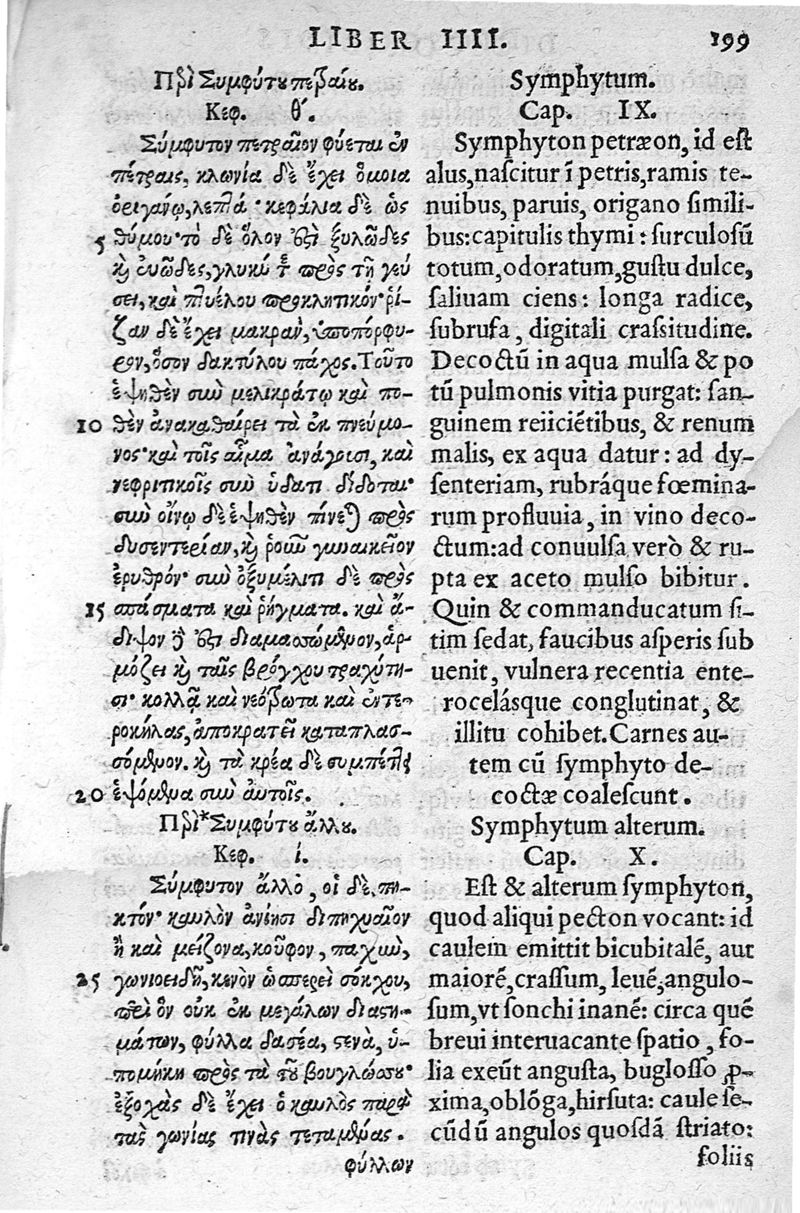 LIBER IIII. 199
Περὶ Συμφύτου πετραίου.
Κεφ. θ΄.
Σύμφυτον πετραῖον φύεται ἐν
πέτραις, κλωνία δὲ ἔχει ὅμοια
ὀριγάνῳ, λεπτά· κεφάλια δὲ ὡς
5 θύμου· τὸ δὲ ὅλον ἐστὶ ξυλῶδες
καὶ εὐῶδες, γλυκύ τε πρὸς τῇ γεύ
σει, καὶ πτυέλου προκλητικόν· ῥί-
ζαν δὲ ἔχει μακρὰν, ὑποπόρφυ-
ρον, ὅσον δακτύλου πάχος. Τοῦτο
ἑψηθὲν σὺν μελικράτῳ καὶ πο-
10 θὲν ἀνακαθαίρει τὰ ἐκ πνεύμο-
νος· καὶ τοῖς αἷμα ἀνάγουσι, καὶ
νεφριτικοῖς σὺν ὕδατι δίδοται·
σὺν οἴνῳ δὲ ἑψηθὲν πίνεται πρὸς
δυσεντερίαν, καὶ ῥοῦν γυναικεῖον
ἐρυθρόν· σὺν ὀξυμέλιτι δὲ πρὸς
15 σπάσματα καὶ ῥήγματα. καὶ ἄ-
διψον δέ ἐστι διαμασσώμενον, ἁρ-
μόζει καὶ ταῖς βρόγχου τραχύτη-
σι· κολλᾷ καὶ νεότρωτα καὶ ἐντε-
ροκήλας, ἀποκρατεῖ καταπλασ-
σόμενον. καὶ τὰ κρέα δὲ συμπέττει
20 ἑψόμενα σὺν αὐτοῖς.
Περὶ* Συμφύτου ἄλλου.
Κεφ. ί.
Σύμφυτον ἄλλο, οἱ δὲ πη-
κτόν· καυλὸν ἀνίησι διπηχυαῖον
ἢ καὶ μείζονα, κοῦφον, παχὺν,
25 γωνιοειδῆ, κενὸν ὡσπερεὶ σόγχου,
περὶ ὃν οὐκ ἐκ μεγάλων διαστη-
μάτων, φύλλα δασέα, στενὰ, ὑ-
πομήκη πρὸς τὰ τοῦ βουγλώσσου·
ἐξοχὰς δὲ ἔχει ὁ καυλὸς παρὰ
τὰς γωνίας τινὰς τεταμένας.
φύλλων
Symphytum.
Cap. IX.
Symphyton petræon, id est
alus, nascitur ĩ petris, ramis te-
nuibus, paruis, origano simili-
bus: capitulis thymi: surculosũ
totum, odoratum, gustu dulce,
saliuam ciens: longa radice,
subrufa, digitali crassitudine.
Decoctũ in aqua mulsa & po
tũ pulmonis vitia purgat: san-
guinem reiiciẽtibus, & renum
malis, ex aqua datur: ad dy-
senteriam, rubráque fœmina-
rum profluuia, in vino deco-
ctum: ad conuulsa verò & ru-
pta ex aceto mulso bibitur.
Quin & commanducatum si-
tim sedat, faucibus asperis sub
uenit, vulnera recentia ente-
rocelásque conglutinat, &
illitu cohibet. Carnes au-
tem cũ symphyto de-
coctæ coalescunt.
Symphytum alterum.
Cap. X.
Est & alterum symphyton,
quod aliqui pecton vocant: id
caulem emittit bicubitalẽ, aut
maiorẽ, crassum, leuẽ, angulo-
sum, vt sonchi inanẽ: circa quẽ
breui interuacante spatio, fo-
lia exeũt angusta, buglosso ꝓ-
xima, oblõga, hirsuta: caule se-
cũdũ angulos quosdã striato:
foliis